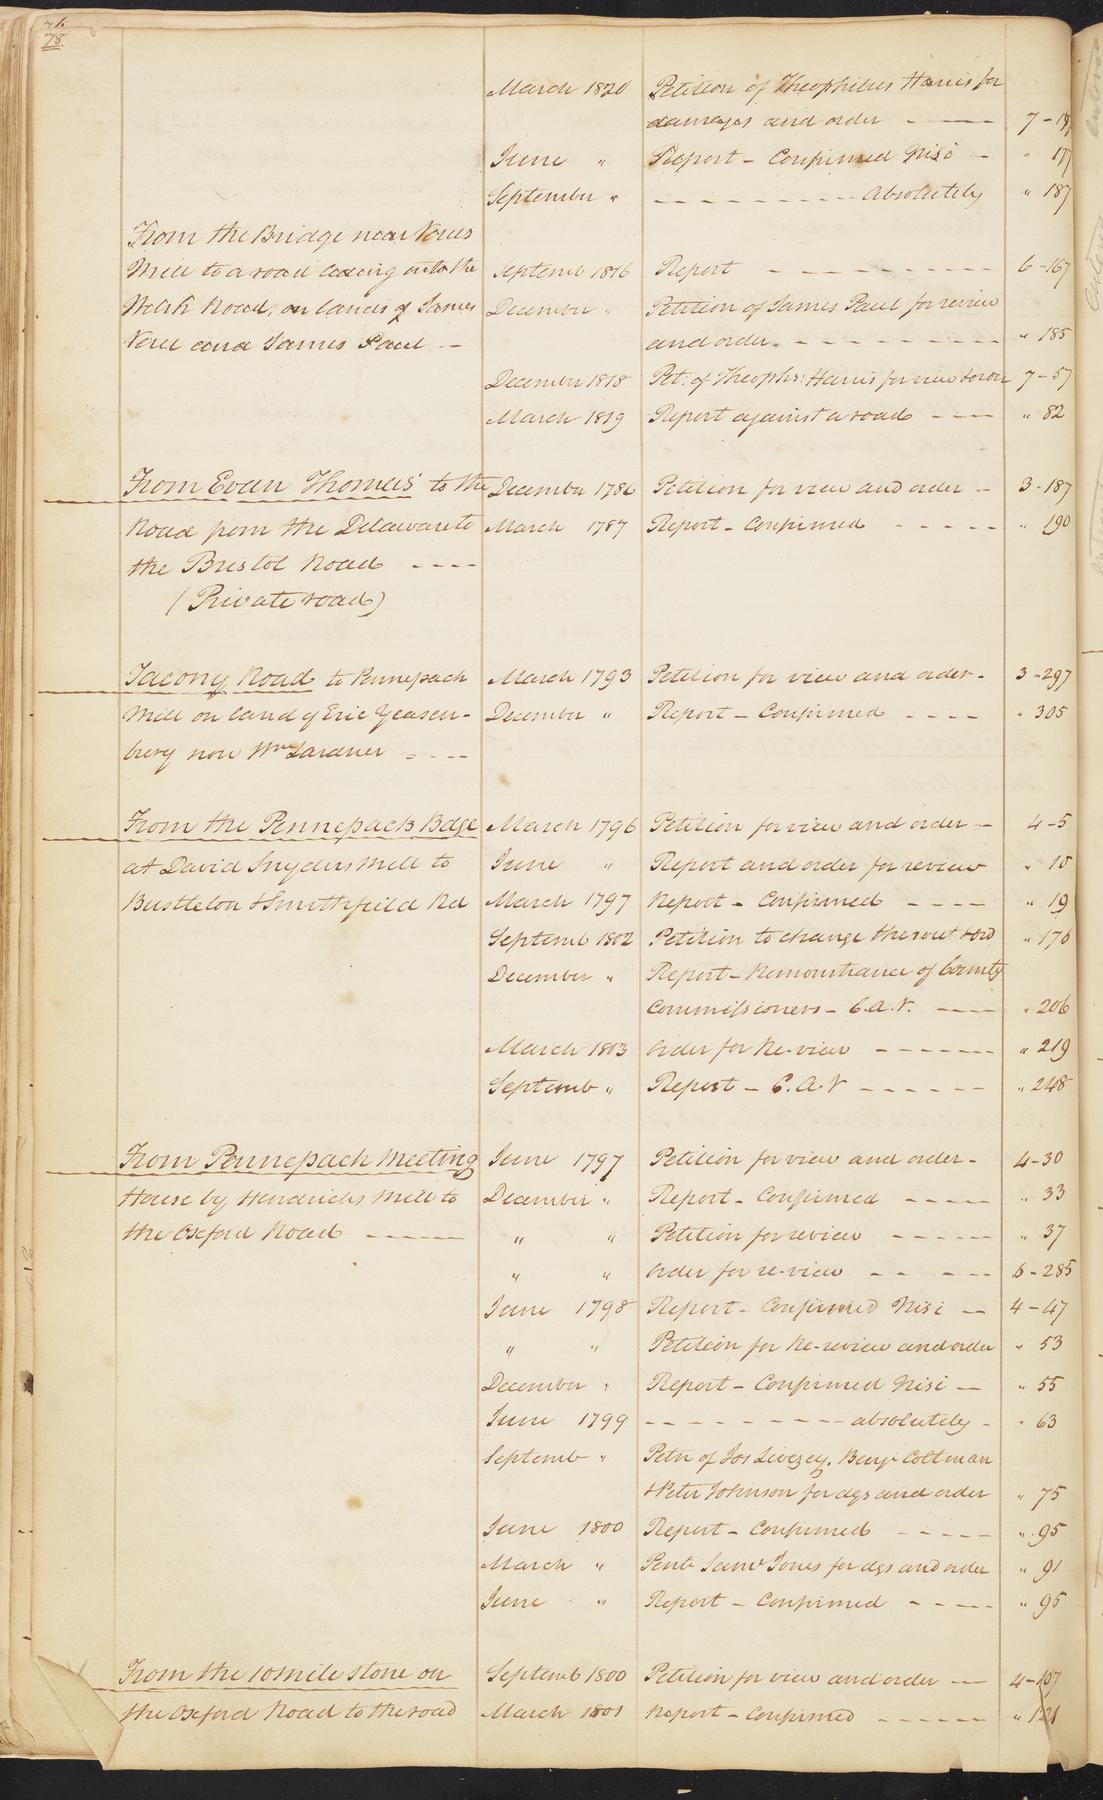 76
78
March 1820 Petition of Theophilus Harris for
damages and order - - 7 - 
June " Report - Confirmed Nisi - " 177
September " - - - - - - - - - Absolutely " 187
From the Bridge near Vorees
Mill to a road leading onto the Septemb 1816 Report - - - - - - - - - 6 - 167
Welsh Road, on lands of James December " Petition of James Paul for review
Voree and James Paul - and order - - - - - - - - - " 185
December 1818 Pet: of Theophs: Harris for view & order 7 - 57
March 1819 Report against a road - - - " 82
From Evan Thomas' to the December 1786 Petition for view and order - 3 - 187
Road from the Delaware to March 1787 Report - Confirmed - - - - - " 190
the Bristol Road - - - -
(Private road)
Tacony Road to Pennepack March 1793 Petition for view and order - 3 - 297
Mill on land of Eric Yeasen- December " Report - Confirmed - - - - " 305
bery now Wm Lardner - - - -
From the Pennepack Bdge March 1796 Petition for view and order - 4 - 5
at David Snyders Mill to June " Report and order for review " 10
Bustleton & Smithfield Rd March 1797 Report - Confirmed - - - - " 19
Septemb 1802 Petition to change the rout & ord " 176
December " Report - Remonstrance of County
Commissioners - C.A.V. - - - " 206
March 1803 order for Re-view - - - - - - " 219
Septemb " Report - C.A.V - - - - - - " 248
From Pennepack Meeting June 1797 Petition for view and order - 4 - 30
House by Hendricks Mill to December " Report - Confirmed - - - - - " 33
the Oxford Road - - - - - " " Petition for review - - - - - " 37
" " order for re-view - - - - - 6 - 285
June 1798 Report - Confirmed Nisi - 4 - 47
" " Petition for Re-review and order " 53
December " Report - Confirmed Nisi - " 55
June 1799 - - - - - - - - - absolutely - " 63
Septemb " Petn of Jos Livezey, Benjn Cottman
& Peter Johnson for dgs and order " 75
June 1800 Report - Confirmed - - - - - " 95
March " Saml Jones for dgs and order " 91
June " Report - Confirmed - - - - " 95
From the 10 mile stone on Septemb 1800 Petition for view and order - 4 - 107
the Oxford Road to the road March 1801 Report - Confirmed - - - - - " 121